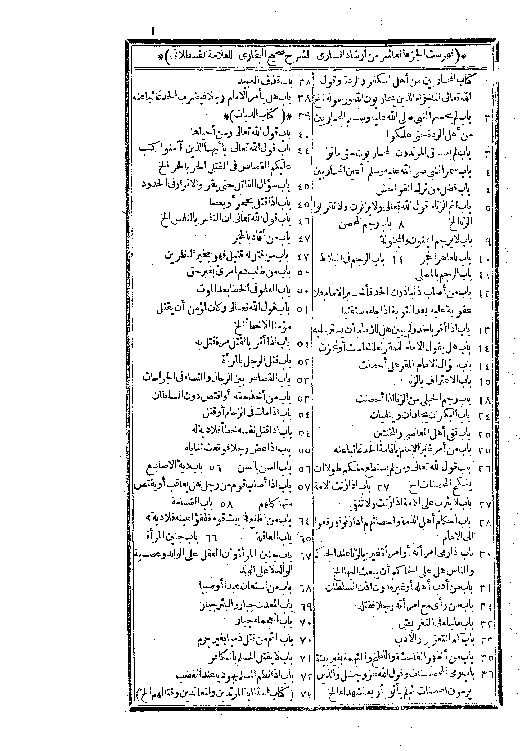 *(فهرست الجزء العاشر من ارشاد السارى لشرح صحيح البخارى للعلامة القسطلانى)*
كتاب المحاربين من أهل الكفر والردة وقول
الله تعالى انما جزاء الذين يحاربون الله ورسوله الخ
٣ باب لم يحسم النبى صلى الله عليه وسلم المحاربين
من أهل الردة حتى هلكوا
٣ باب لم يسق المرتدون المحاربون حتى ماتوا
٤ باب سمر النبى صلى الله عليه وسلم أعين المحاربين
٤ باب فضل من ترك الفواحش
٥ باب اثم الزناة وقول الله تعالى ولا يزنون ولا تقربوا
الزنا الخ ٨ باب رجم المحصن
٩ باب لا يرجم المجنون والمجنونة
١٠ باب للعاهر الحجر ١١ باب الرجم فى البلاط
باب الرجم بالمصلى
١٢ باب من أصاب ذنبا دون الحد فأخبر الامام فلا
عقوبة عليه بعد التوبة اذا جاء مستفتيا
١٣ باب اذا أقر بالحد ولم يبين هل للامام أن يستر عليه
١٤ باب هل يقول الامام للمقر لعلك لمست أو غمزت
١٤ باب سؤال الامام المقر هل أحصنت
١٥ باب الاعتراف بالزنا
١٨ باب رجم الحبلى من الزنا اذا أحصنت
٢٤ باب البكران يجلدان وينفيان
٢٥ باب نفى أهل المعاصى والمخنثين
٢٥ باب من أمر غير الامام باقامة الحد غائبا عنه
٢٦ باب قول الله تعالى ومن لم يستطع منكم طولا أن
ينكح المحصنات الخ ٢٧ باب اذا زنت الامة
٢٧ باب لا يثرب على الامة اذا زنت ولا تنفى
٢٨ باب أحكام أهل الذمة واحصانهم اذا زنوا ورفعوا
الى الامام
٣٠ باب اذا رمى امرأته أو امرأة غيره بالزنا عند الحاكم
والناس هل على الحاكم أن يبعث اليها الخ
٣١ باب من أدب أهله أو غيره دون السلطان
باب من رأى مع امرأته رجلا فقتله
٣٢ باب ما جاء فى التعريض
٣٣ باب كم التعزير والادب
٣٥ باب من أظهر الفاحشة واللطخ والتهمة بغير بينة
٣٦ باب رمى المحصنات وقول الله عز وجل والذين
يرمون المحصنات ثم لم يأتوا بأربعة شهداء الخ
٣٨ باب قذف العبيد
٣٨ باب هل يأمر الامام رجلا فيضرب الحد غائبا عنه
٣٩ *(كتاب الديات)*
٤٠ باب قول الله تعالى ومن أحياها
٤٤ باب قول الله تعالى يا أيها الذين آمنوا كتب
عليكم القصاص فى القتلى الحر بالحر الخ
٤٥ باب سؤال القاتل حتى يقر والاقرار فى الحدود
٤٥ باب اذا قتل بحجر أو بعصا
٤٦ باب قول الله تعالى ان النفس بالنفس الخ
٤٧ باب من أقاد بالحجر
٤٧ باب من قتل له قتيل فهو بخير النظرين
٥٠ باب من طلب دم امرئ بغير حق
٥٠ باب العفو فى الخطأ بعد الموت
٥١ باب قول الله تعالى وما كان لمؤمن أن يقتل
مؤمنا الا خطأ الخ
٥١ باب اذا أقر بالقتل مرة قتل به
٥٢ باب قتل الرجل بالمرأة
٥٢ باب القصاص بين الرجال والنساء فى الجراحات
٥٣ باب من أخذ حقه أو اقتص دون السلطان
٥٤ باب اذا مات فى الزحام أو قتل
٥٤ باب اذا قتل نفسه خطأ فلا دية له
٥٥ باب اذا عض رجلا فوقعت ثناياه
٥٦ باب السن بالسن ٥٦ باب دية الاصابع
٥٧ باب اذا أصاب قوم من رجل هل يعاقب أو يقتص
منهم كلهم ٥٨ باب القسامة
٦٤ باب من اطلع فى بيت قوم ففقؤا عينه فلا دية له
٦٥ باب العاقلة ٦٦ باب جنين المرأة
٦٧ باب جنين المرأة وأن العقل على الوالد وعصبة
الوالد لا على الولد
٦٨ باب من استعان عبدا أو صبيا
٦٩ باب المعدن جبار والبئر جبار
٧٠ باب العجماء جبار
٧٠ باب اثم من قتل ذميا بغير جرم
٧١ باب لا يقتل المسلم بالكافر
٧٢ باب اذا لطم المسلم يهوديا عند الغضب
(كتاب استتابة المرتدين والمعاندين وقتالهم الخ)